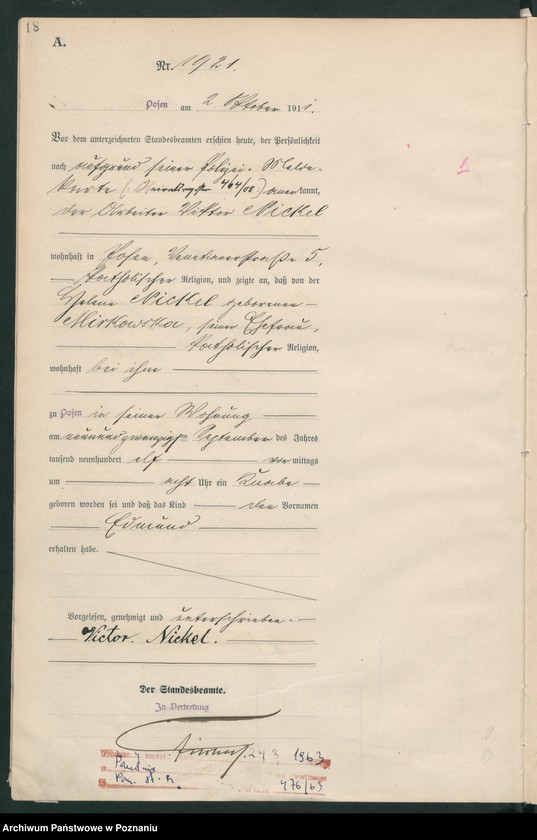 18
A.
Nr. 1921.
Posen am 2. Oktober 1911.
Vor dem unterzeichneten Standesbeamten erschien heute, der Persönlichkeit
nach aufgrund seiner Polizei-Melde-
karte (Heiratsregister 464/08) anerkannt,
der Arbeiter Viktor Nickel
wohnhaft in Posen, Venetianerstraße 5,
katholischer Religion, und zeigte an, daß von der
Helene Nickel geborenen
Mirkowska, seiner Ehefrau,
katholischer Religion,
wohnhaft bei ihm
zu Posen in seiner Wohnung
am neunundzwanzigsten September des Jahres
tausend neunhundert elf vormittags
um acht Uhr ein Knabe
geboren worden sei und daß das Kind den Vornamen
Edmund
erhalten habe.
Vorgelesen, genehmigt und unterschrieben.
Victor. Nickel.
Der Standesbeamte.
In Vertretung
24 3 1963
476/63
Archiwum Państwowe w Poznaniu